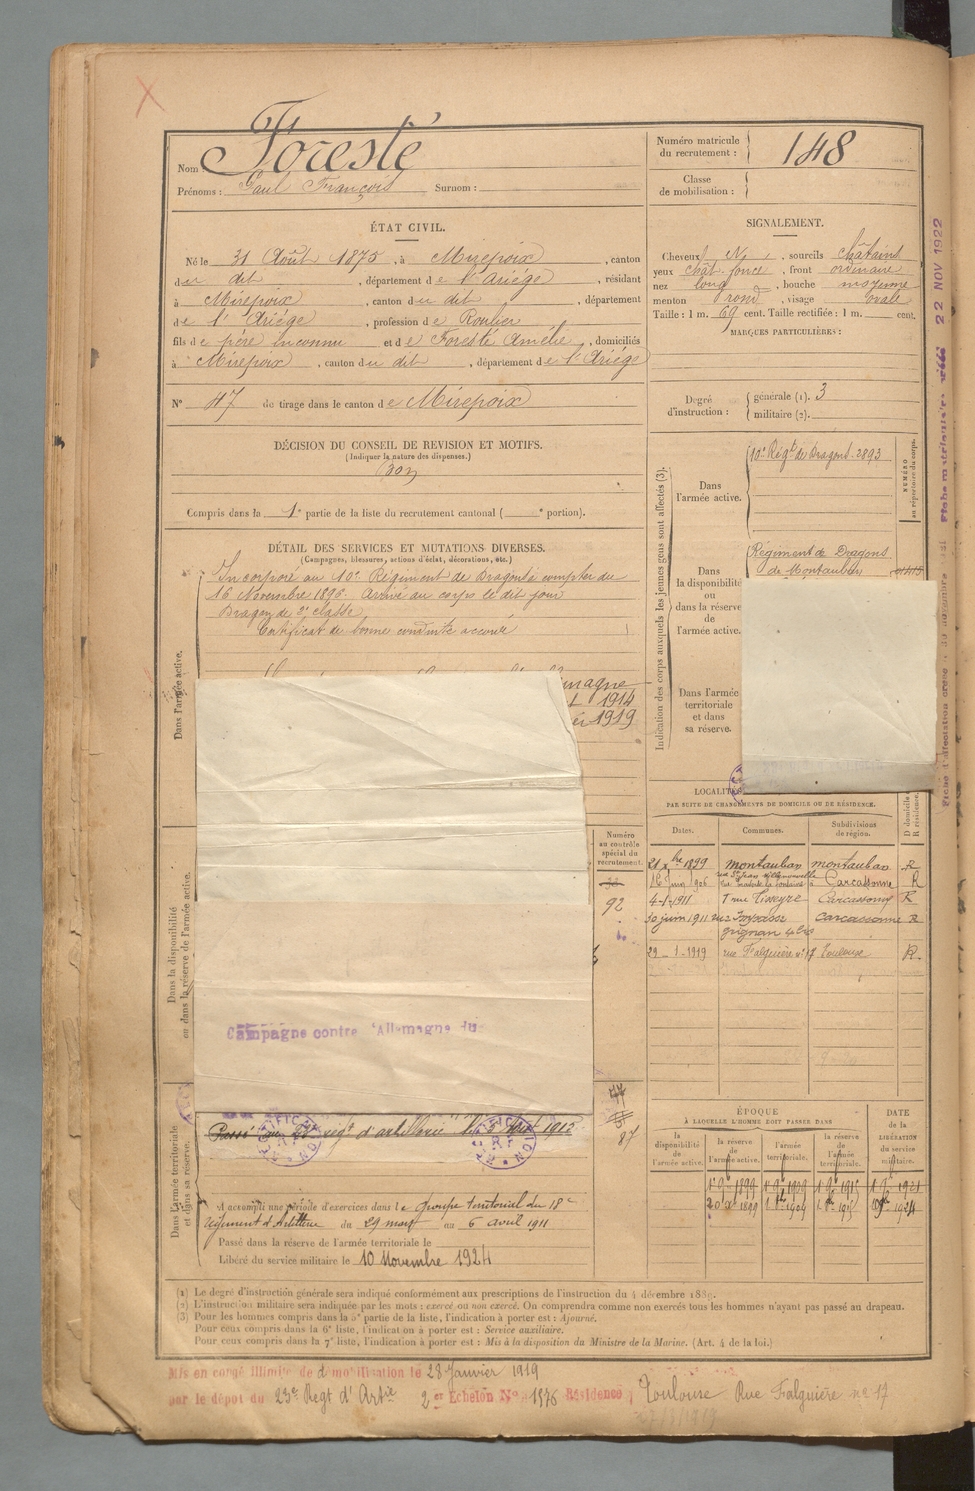 Nom Foresté
Prénoms : Paul François Surnom :
Numéro matricule du recrutement : 148
Classe de mobilisation :
ÉTAT CIVIL.
Né le 31 Août 1875, à Mirepoix, canton
du dit, département de l'Ariége, résidant
à Mirepoix, canton du dit, département
de l'Ariége, profession de Roulier
fils de père inconnu et de Foresté Amélie, domiciliés
à Mirepoix, canton du dit, département de l'Ariége
N° 47 de tirage dans le canton de Mirepoix
SIGNALEMENT.
Cheveux N, sourcils châtains
yeux chât. foncé, front ordinaire
nez long, bouche moyenne
menton rond, visage ovale
Taille : 1 m. 69 cent. Taille rectifiée : 1 m. cent.
MARQUES PARTICULIÈRES :
Degré d'instruction : générale (1). 3
militaire (2).
DÉCISION DU CONSEIL DE REVISION ET MOTIFS.
(Indiquer la nature des dispenses.)
Bon
Compris dans la 1e partie de la liste du recrutement cantonal ( e portion).
Indication des corps auxquels les jeunes gens sont affectés (3).
NUMÉRO au répertoire du corps.
Dans l'armée active.
10e Régt de Dragons 2893
Dans la disponibilité ou dans la réserve de l'armée active.
Régiment de Dragons
de Montauban
Dans l'armée territoriale et dans sa réserve.
DÉTAIL DES SERVICES ET MUTATIONS DIVERSES.
(Campagnes, blessures, actions d'éclat, décorations, etc.)
Dans l'armée active.
Incorporé au 10e Régiment de Dragons à compter du
16 Novembre 1896. Arrivé au corps le dit jour
Dragon de 2e classe
Certificat de bonne conduite accordé
magne
1914
1919
Dans la disponibilité ou dans la réserve de l'armée active.
Numéro au contrôle spécial du recrutement.
92
Campagne contre l'Allemagne du
Dans l'armée territoriale et dans sa réserve.
87
A accompli une période d'exercices dans le Groupe territorial du 18e
régiment d'Artillerie du 29 mars au 6 avril 1911
Passé dans la réserve de l'armée territoriale le
Libéré du service militaire le 10 Novembre 1924
LOCALITÉ
PAR SUITE DE CHANGEMENTS DE DOMICILE OU DE RÉSIDENCE.
Dates. Communes. Subdivisions de région. D domicile R résidence.
21 xbre 1899 Montauban Montauban R
16 Juin 1906 Carcassonne R
4-1-1911 1 rue Tisseyre Carcassonne R
30 juin 1911 Impasse Carcassonne R
grignan 4
29-1-1919 rue Falguière n° 17 Toulouse R.
ÉPOQUE
À LAQUELLE L'HOMME DOIT PASSER DANS
DATE de la LIBÉRATION du service militaire.
la disponibilité de l'armée active. la réserve de l'armée active. l'armée territoriale. la réserve de l'armée territoriale.
(1) Le degré d'instruction générale sera indiqué conformément aux prescriptions de l'instruction du 4 décembre 1889.
(2) L'instruction militaire sera indiquée par les mots : exercé ou non exercé. On comprendra comme non exercés tous les hommes n'ayant pas passé au drapeau.
(3) Pour les hommes compris dans la 5e partie de la liste, l'indication à porter est : Ajourné.
Pour ceux compris dans la 6e liste, l'indication à porter est : Service auxiliaire.
Pour ceux compris dans la 7e liste, l'indication à porter est : Mis à la disposition du Ministre de la Marine. (Art. 4 de la loi.)
Mis en congé illimité de démobilisation le 28 Janvier 1919
par le dépôt du 23e Regt d'Artie 2er Echelon N° 1576 Résidence, Toulouse Rue Falguière n° 17
22 NOV 1922